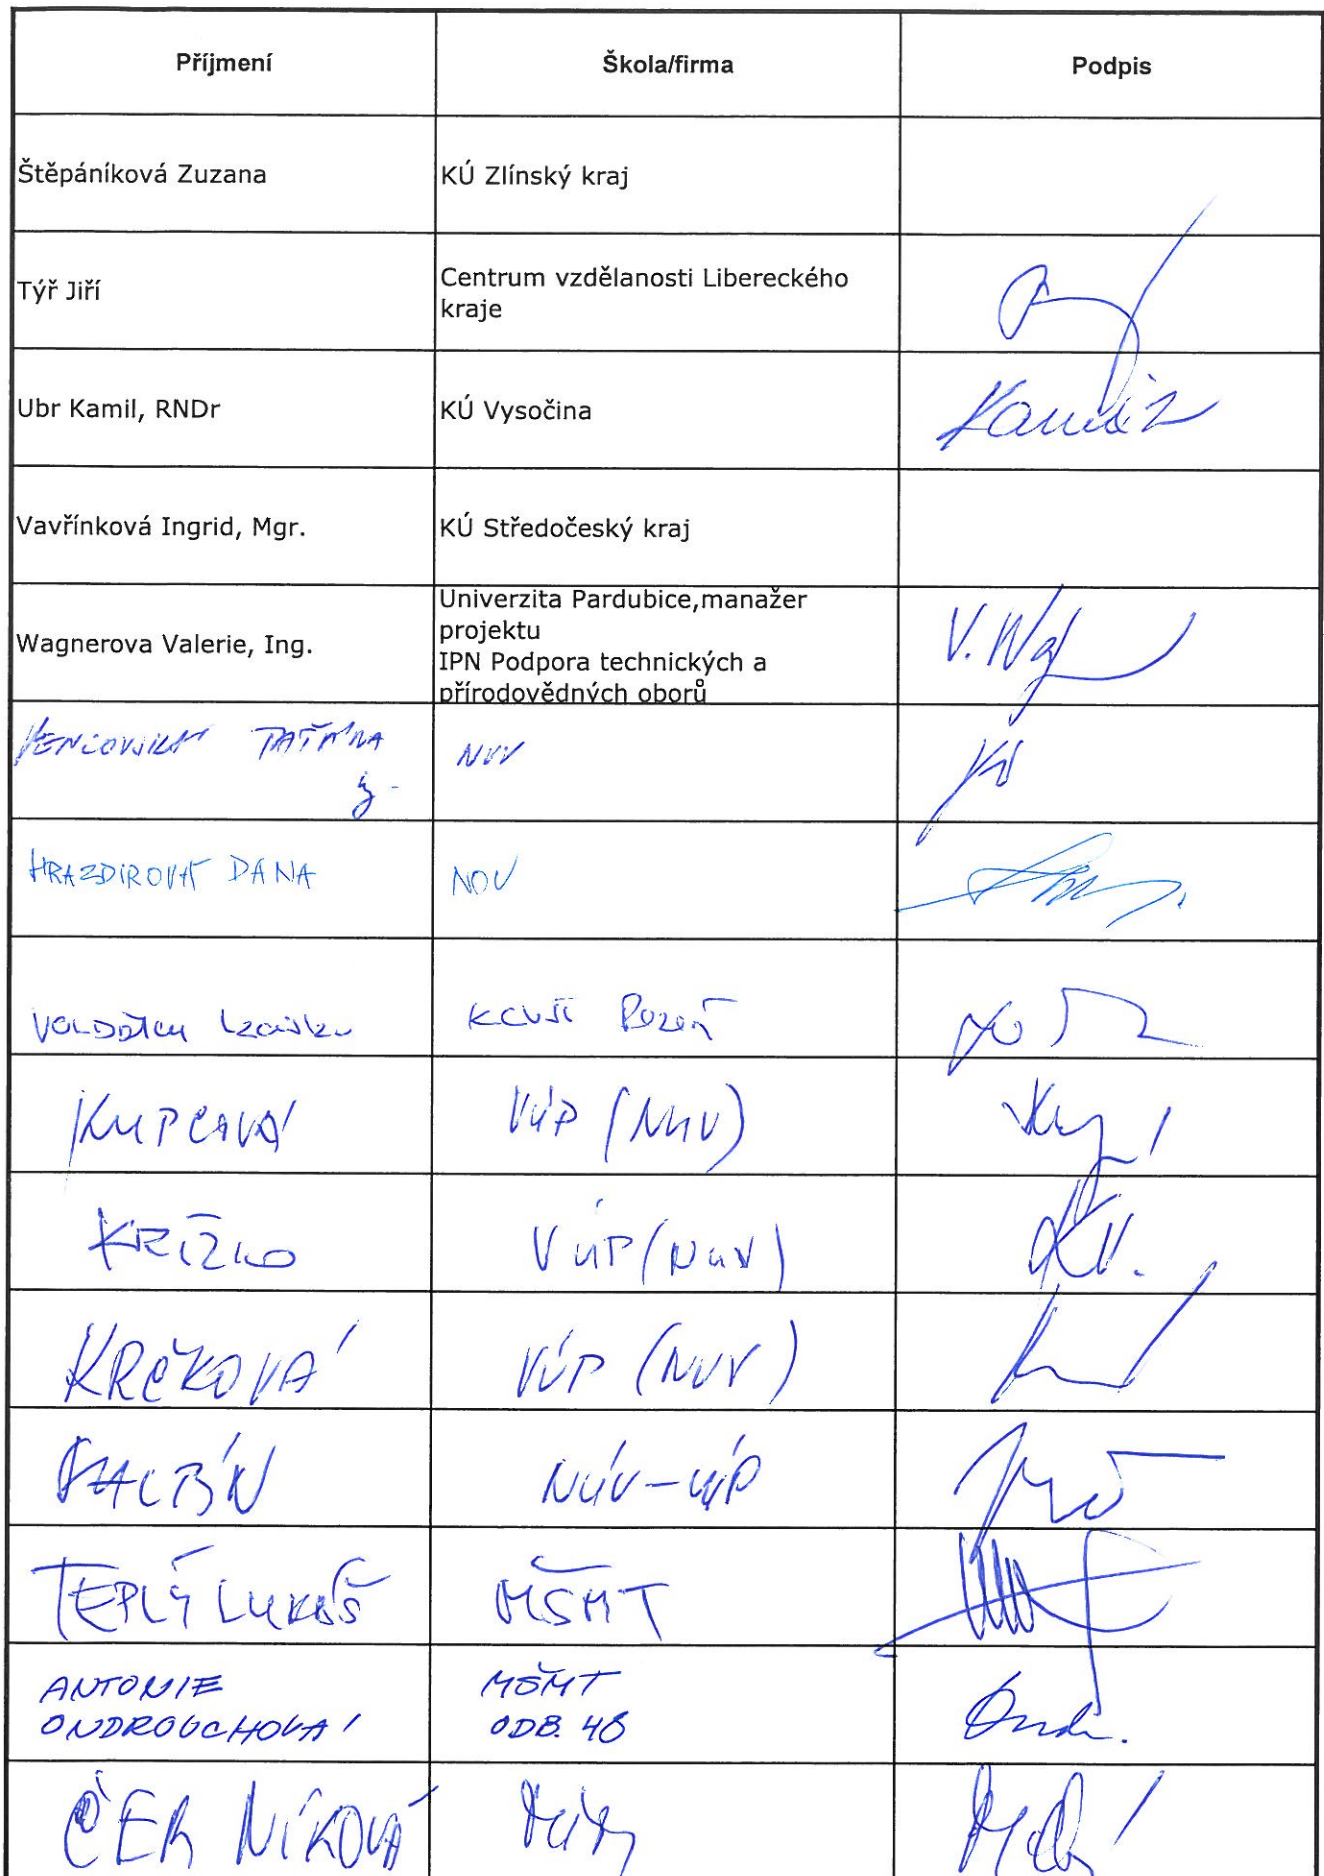 Příjmení Škola/firma Podpis
Štěpáníková Zuzana KÚ Zlínský kraj
Týř Jiří Centrum vzdělanosti Libereckého
kraje
Ubr Kamil, RNDr KÚ Vysočina
Vavřínková Ingrid, Mgr. KÚ Středočeský kraj
Wagnerova Valerie, Ing. Univerzita Pardubice,manažer
projektu
IPN Podpora technických a
přírodovědných oborů
V. Wag
TAŤÁNA
HRAZDIROVÁ DANA NÚV
VÚP (NUV)
KŘÍŽKO VÚP (NUV)
KRČKOVÁ VÚP (NUV)
NÚV-VÚP
TEPLÝ LUKÁŠ MŠMT
ANTONIE MŠMT
ONDROUCHOVÁ ODB. 46
Ondr.
ČERNÍKOVÁ